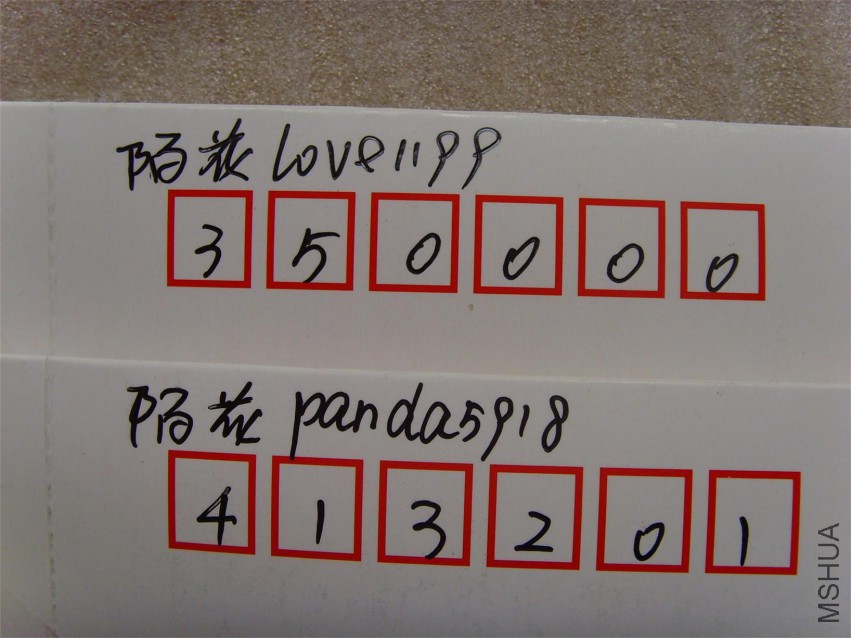 陌花love1199
350000
陌花panda5918
413201
MSHUA